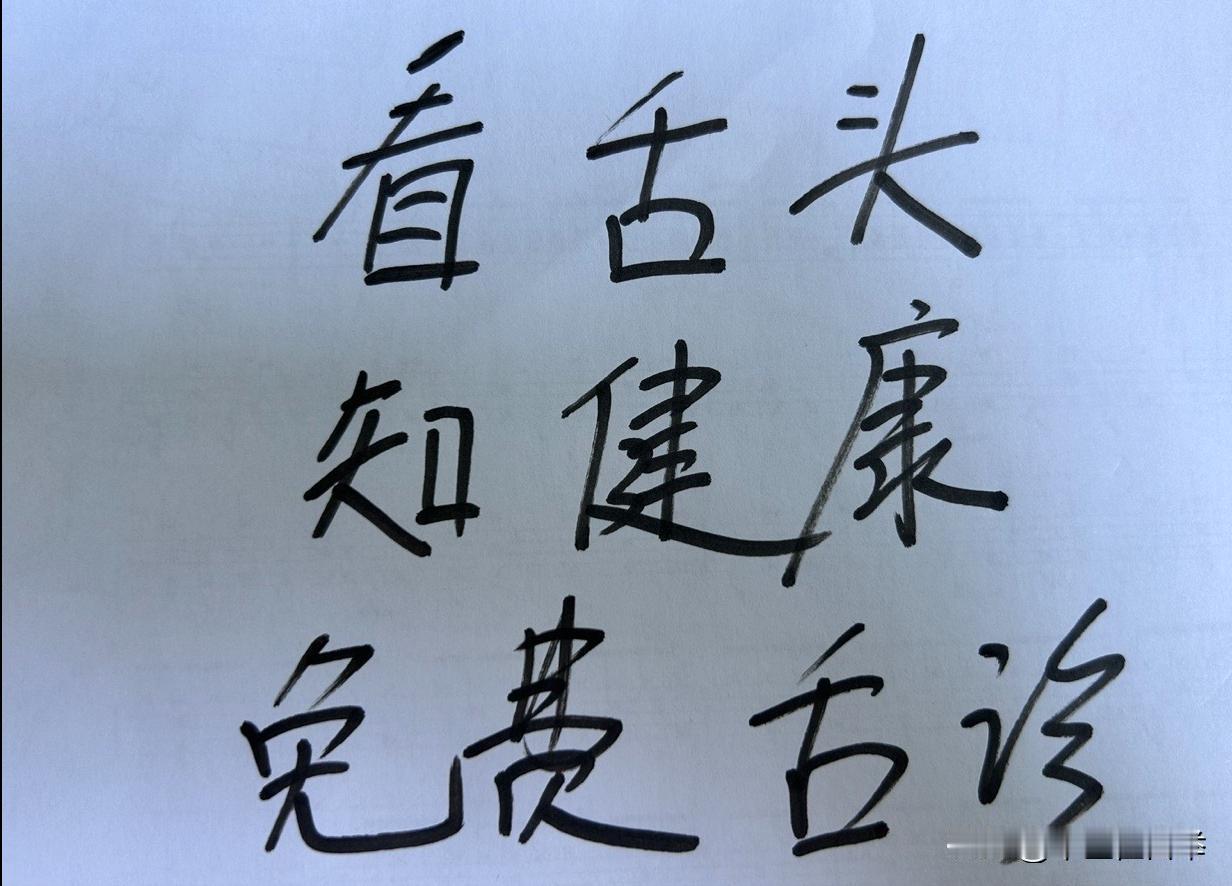 看舌头
知健康
免费舌诊